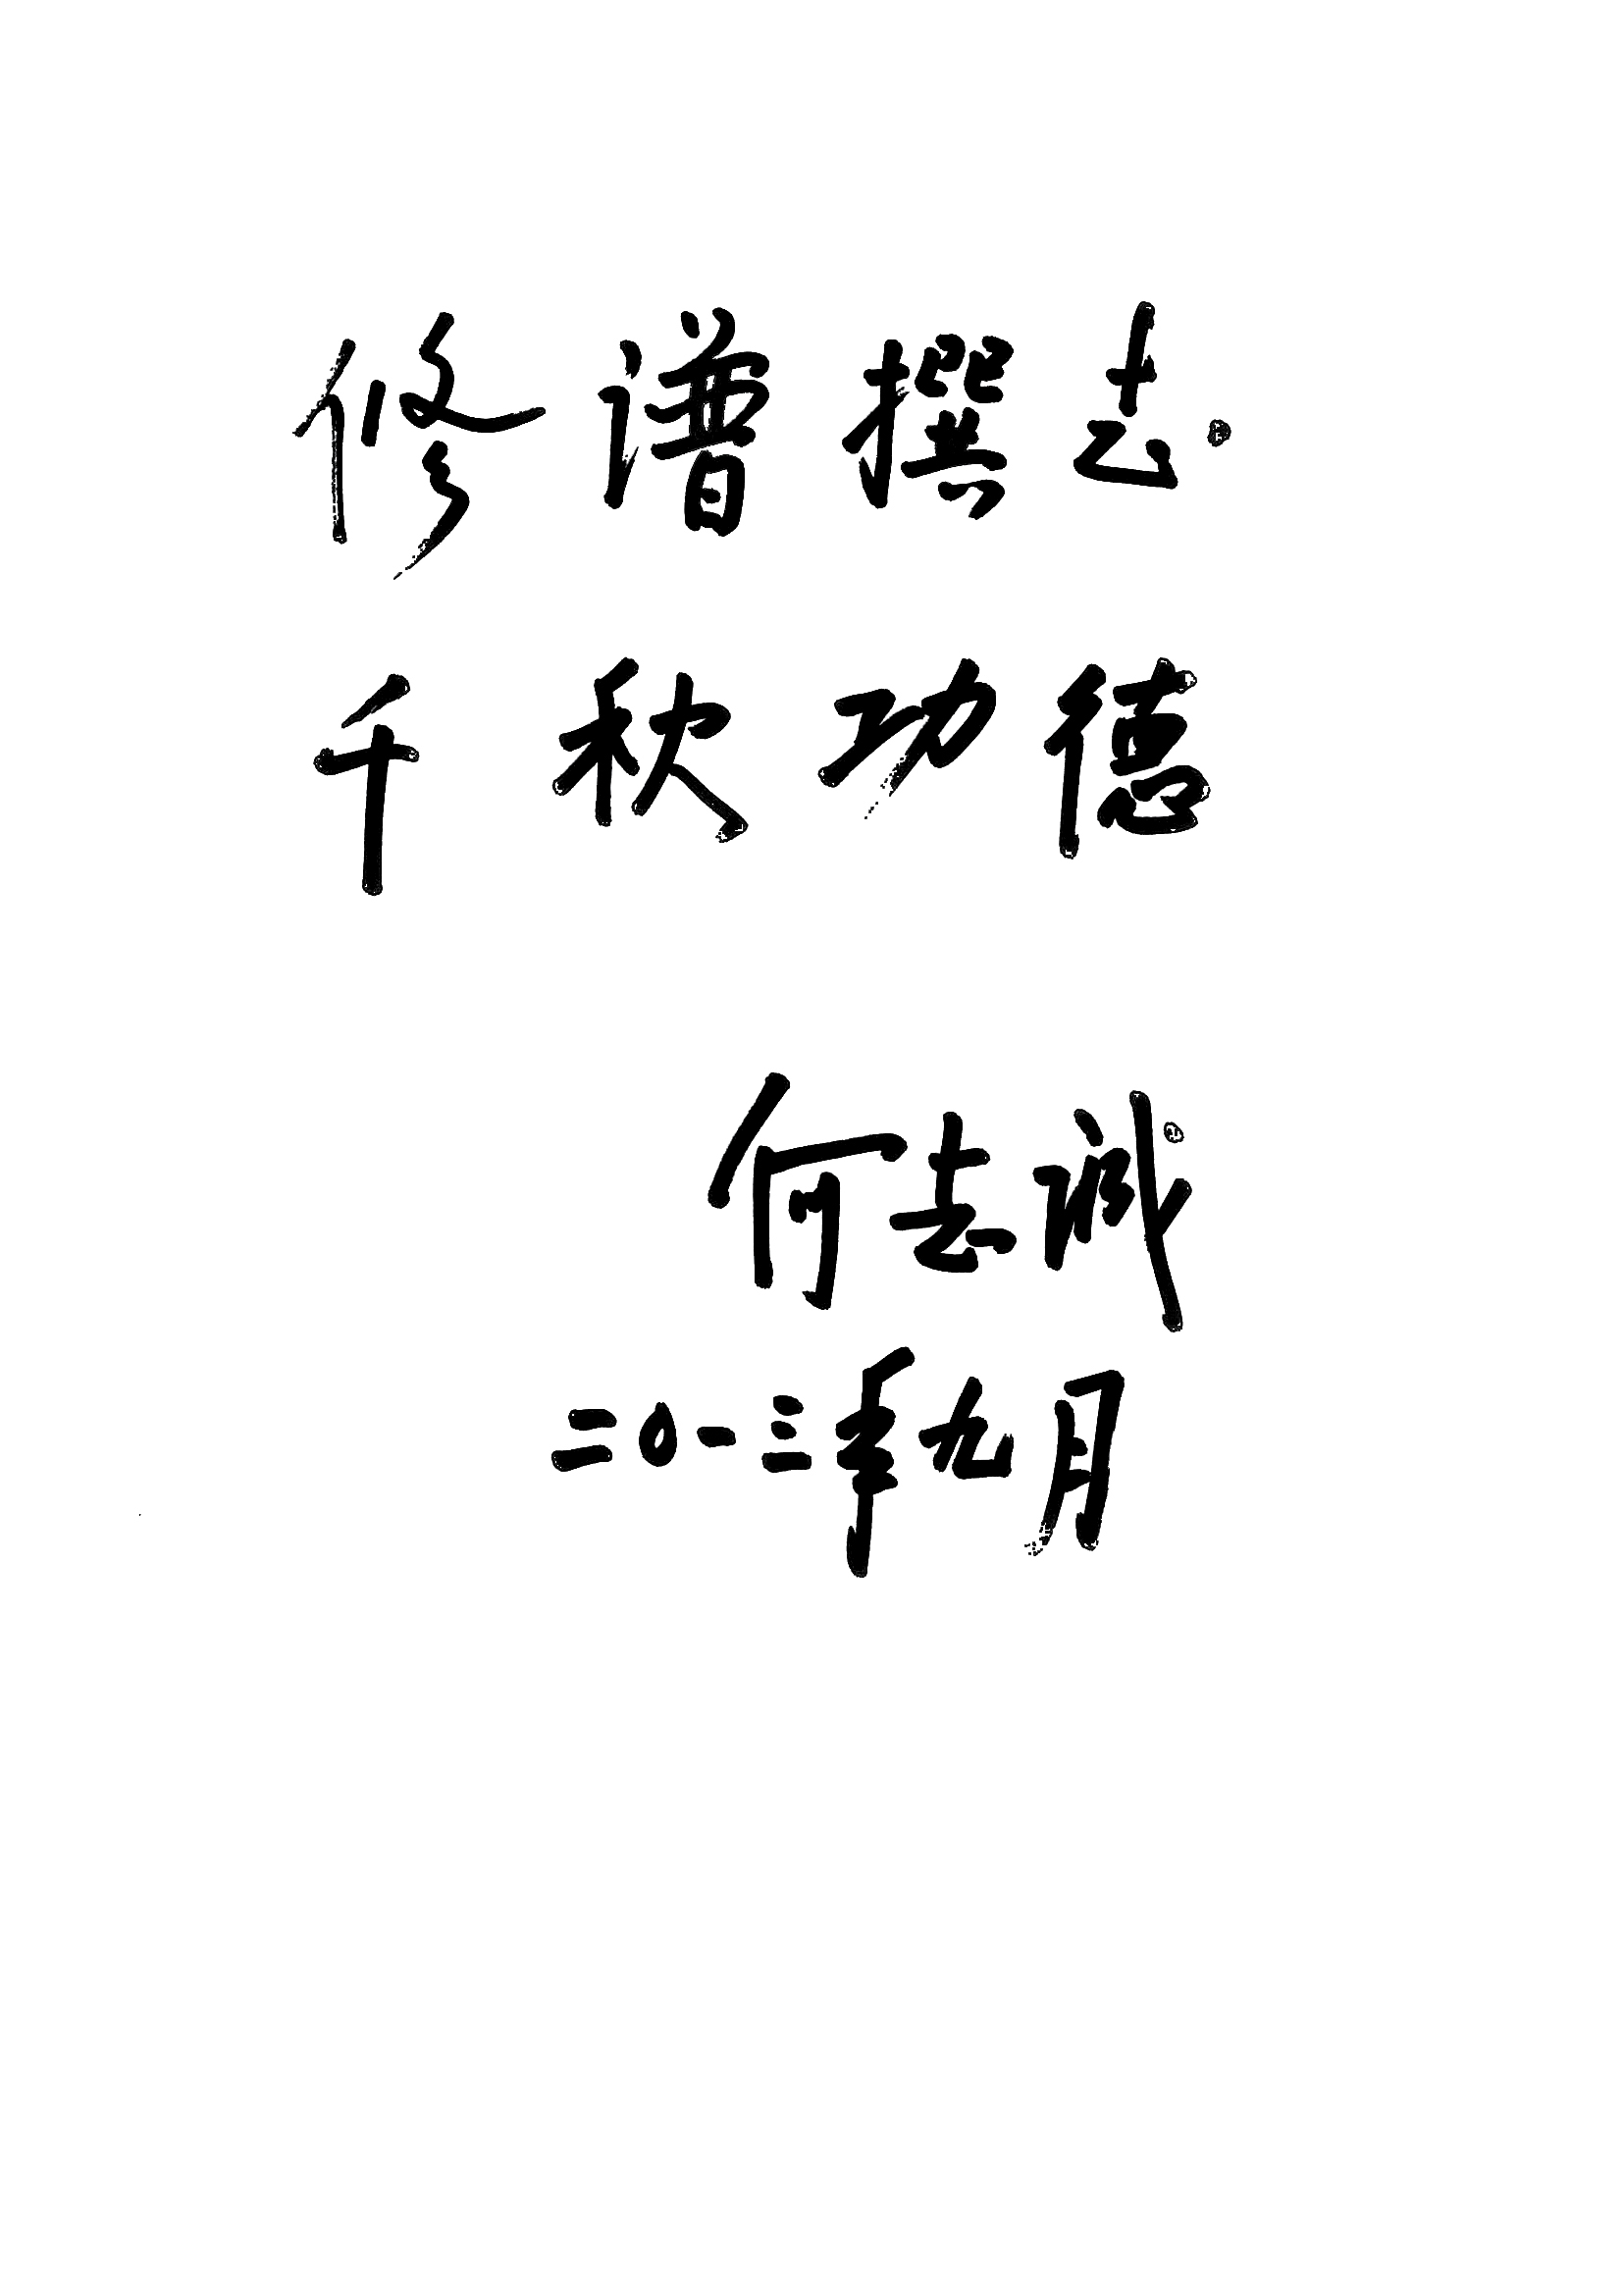 修谱撰志
千秋功德
何志诚
二〇一三年九月